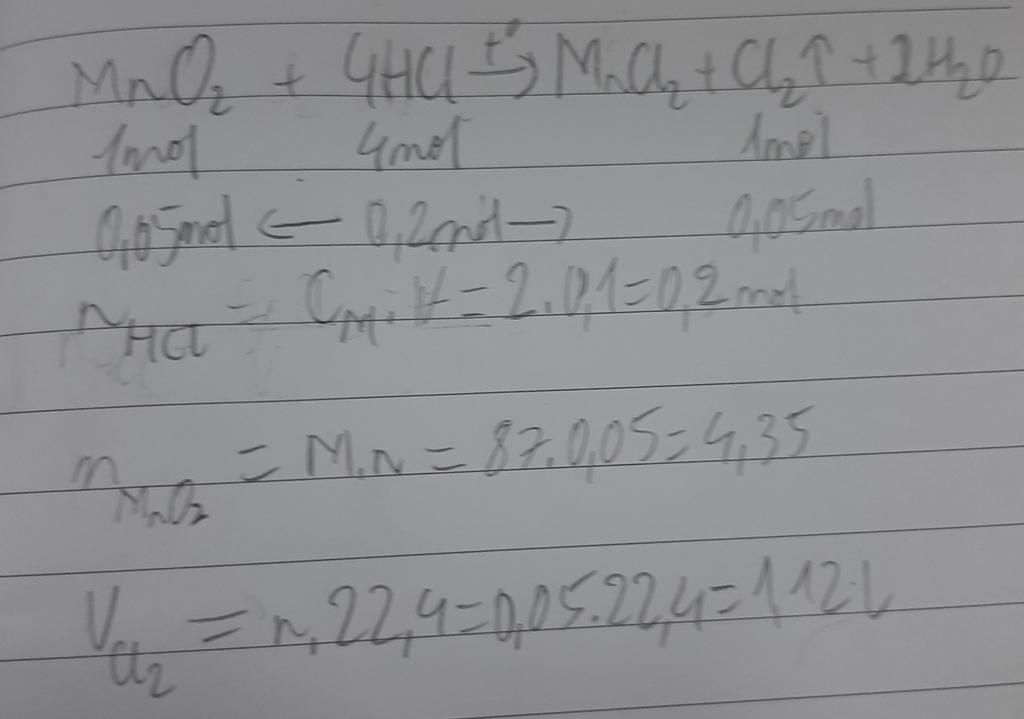 MnO₂ + 4HCl t°→ MnCl₂ + Cl₂↑ + 2H₂O
1mol 4mol 1mol
0,05mol ← 0,2mol → 0,05mol
n HCl = C_M . V = 2 . 0,1 = 0,2 mol
m MnO₂ = M.n = 87.0,05 = 4,35
V Cl₂ = n.22,4 = 0,05.22,4 = 1,12 L